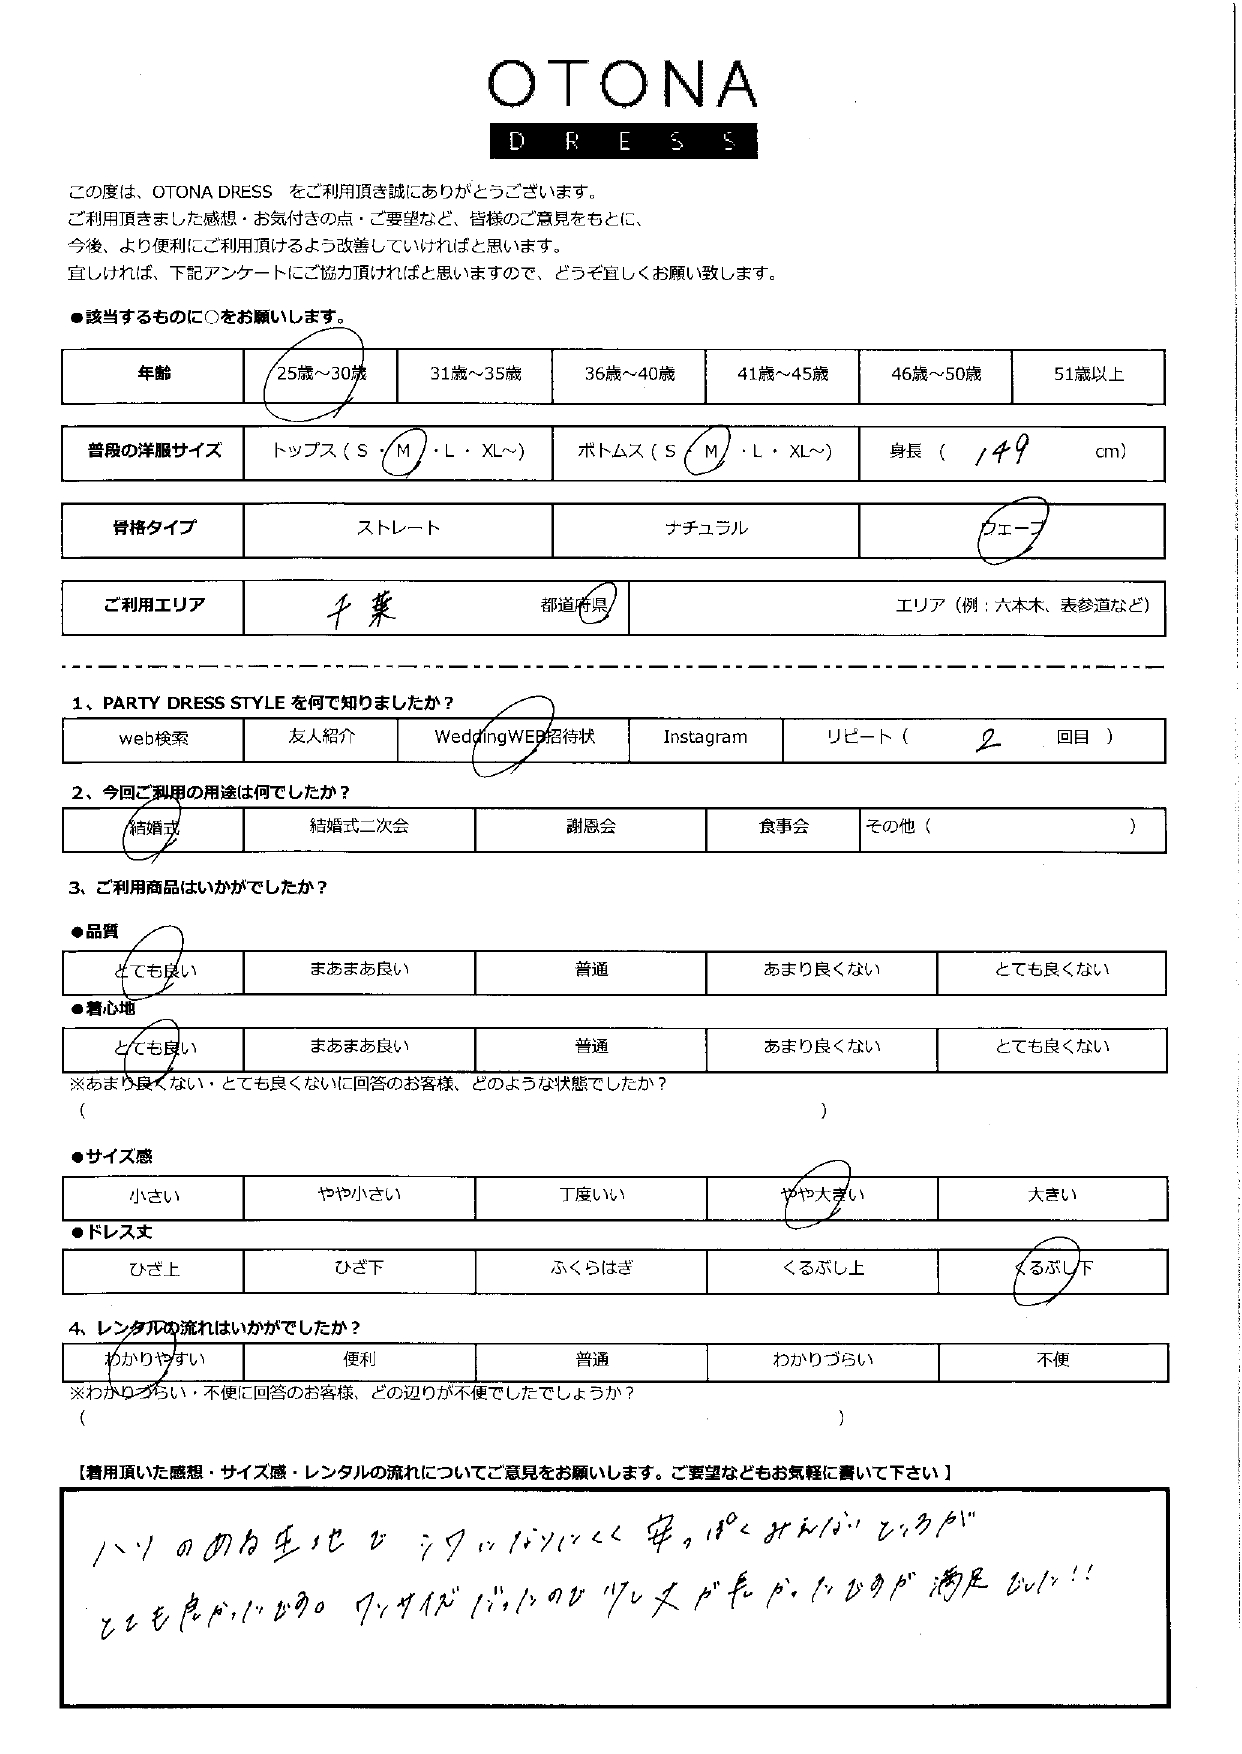 OTONA
DRESS
この度は、OTONA DRESS　をご利用頂き誠にありがとうございます。
ご利用頂きました感想・お気付きの点・ご要望など、皆様のご意見をもとに、
今後、より便利にご利用頂けるよう改善していければと思います。
宜しければ、下記アンケートにご協力頂ければと思いますので、どうぞ宜しくお願い致します。
●該当するものに○をお願いします。
年齢 25歳～30歳 31歳～35歳 36歳～40歳 41歳～45歳 46歳～50歳 51歳以上
普段の洋服サイズ トップス（ S ・ M ・ L ・ XL～） ボトムス（ S ・ M ・ L ・ XL～） 身長（ 149 cm）
骨格タイプ ストレート ナチュラル ウェーブ
ご利用エリア 千葉 都道府県 エリア（例：六本木、表参道など）
1、PARTY DRESS STYLE を何で知りましたか？
web検索 友人紹介 WeddingWEB招待状 Instagram リピート（ 2 回目 ）
2、今回ご利用の用途は何でしたか？
結婚式 結婚式二次会 謝恩会 食事会 その他（ ）
3、ご利用商品はいかがでしたか？
●品質
とても良い まあまあ良い 普通 あまり良くない とても良くない
●着心地
とても良い まあまあ良い 普通 あまり良くない とても良くない
※あまり良くない・とても良くないに回答のお客様、どのような状態でしたか？
（ ）
●サイズ感
小さい やや小さい 丁度いい やや大きい 大きい
●ドレス丈
ひざ上 ひざ下 ふくらはぎ くるぶし上 くるぶし下
4、レンタルの流れはいかがでしたか？
わかりやすい 便利 普通 わかりづらい 不便
※わかりづらい・不便に回答のお客様、どの辺りが不便でしたでしょうか？
（ ）
【着用頂いた感想・サイズ感・レンタルの流れについてご意見をお願いします。ご要望などもお気軽に書いて下さい】
ハリのある生地で シワになりにくく 安っぽくみえないところが
とても良かったです。ワンサイズだったので少し丈が長かったですが満足でした!!